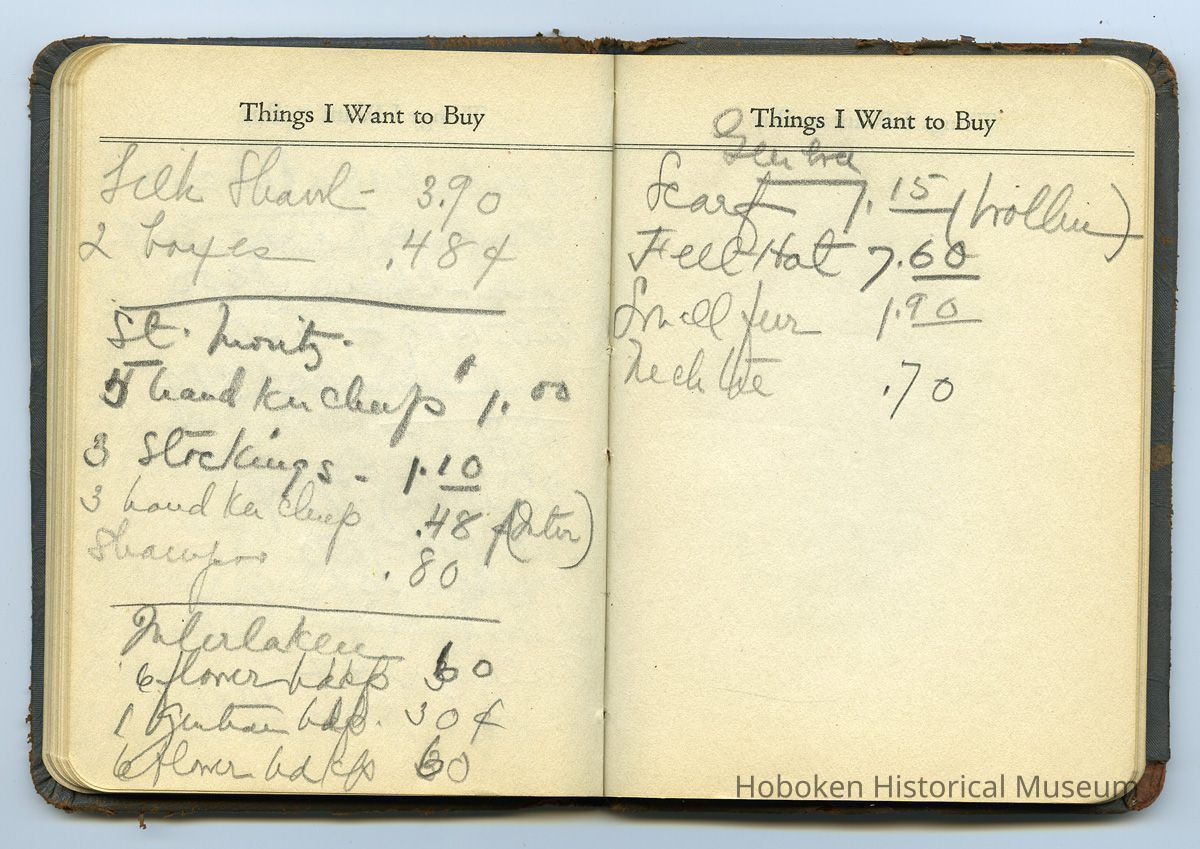 Things I Want to Buy
Silk Shawl - 3.90
2 boxes .48¢
St. Moritz.
5 hand kerchiefs 1.00
3 Stockings - 1.10
3 hand kerchiefs .48
Shampoo .80
Interlaken
6 flower hdkfs 60
1 Gentian hdp. 30¢
6 flower hdkfs 60
Things I Want to Buy
Geneva
Scarf 7.15
Felt Hat 7.60
Small fur 1.90
Neck tie .70
Hoboken Historical Museum